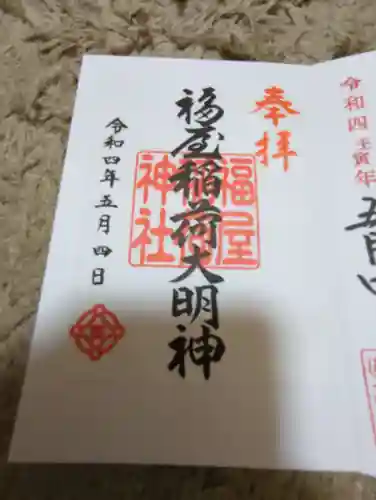 令和四壬寅年
五月四
奉拝
福屋稲荷大明神
福屋
神社
令和四年五月四日